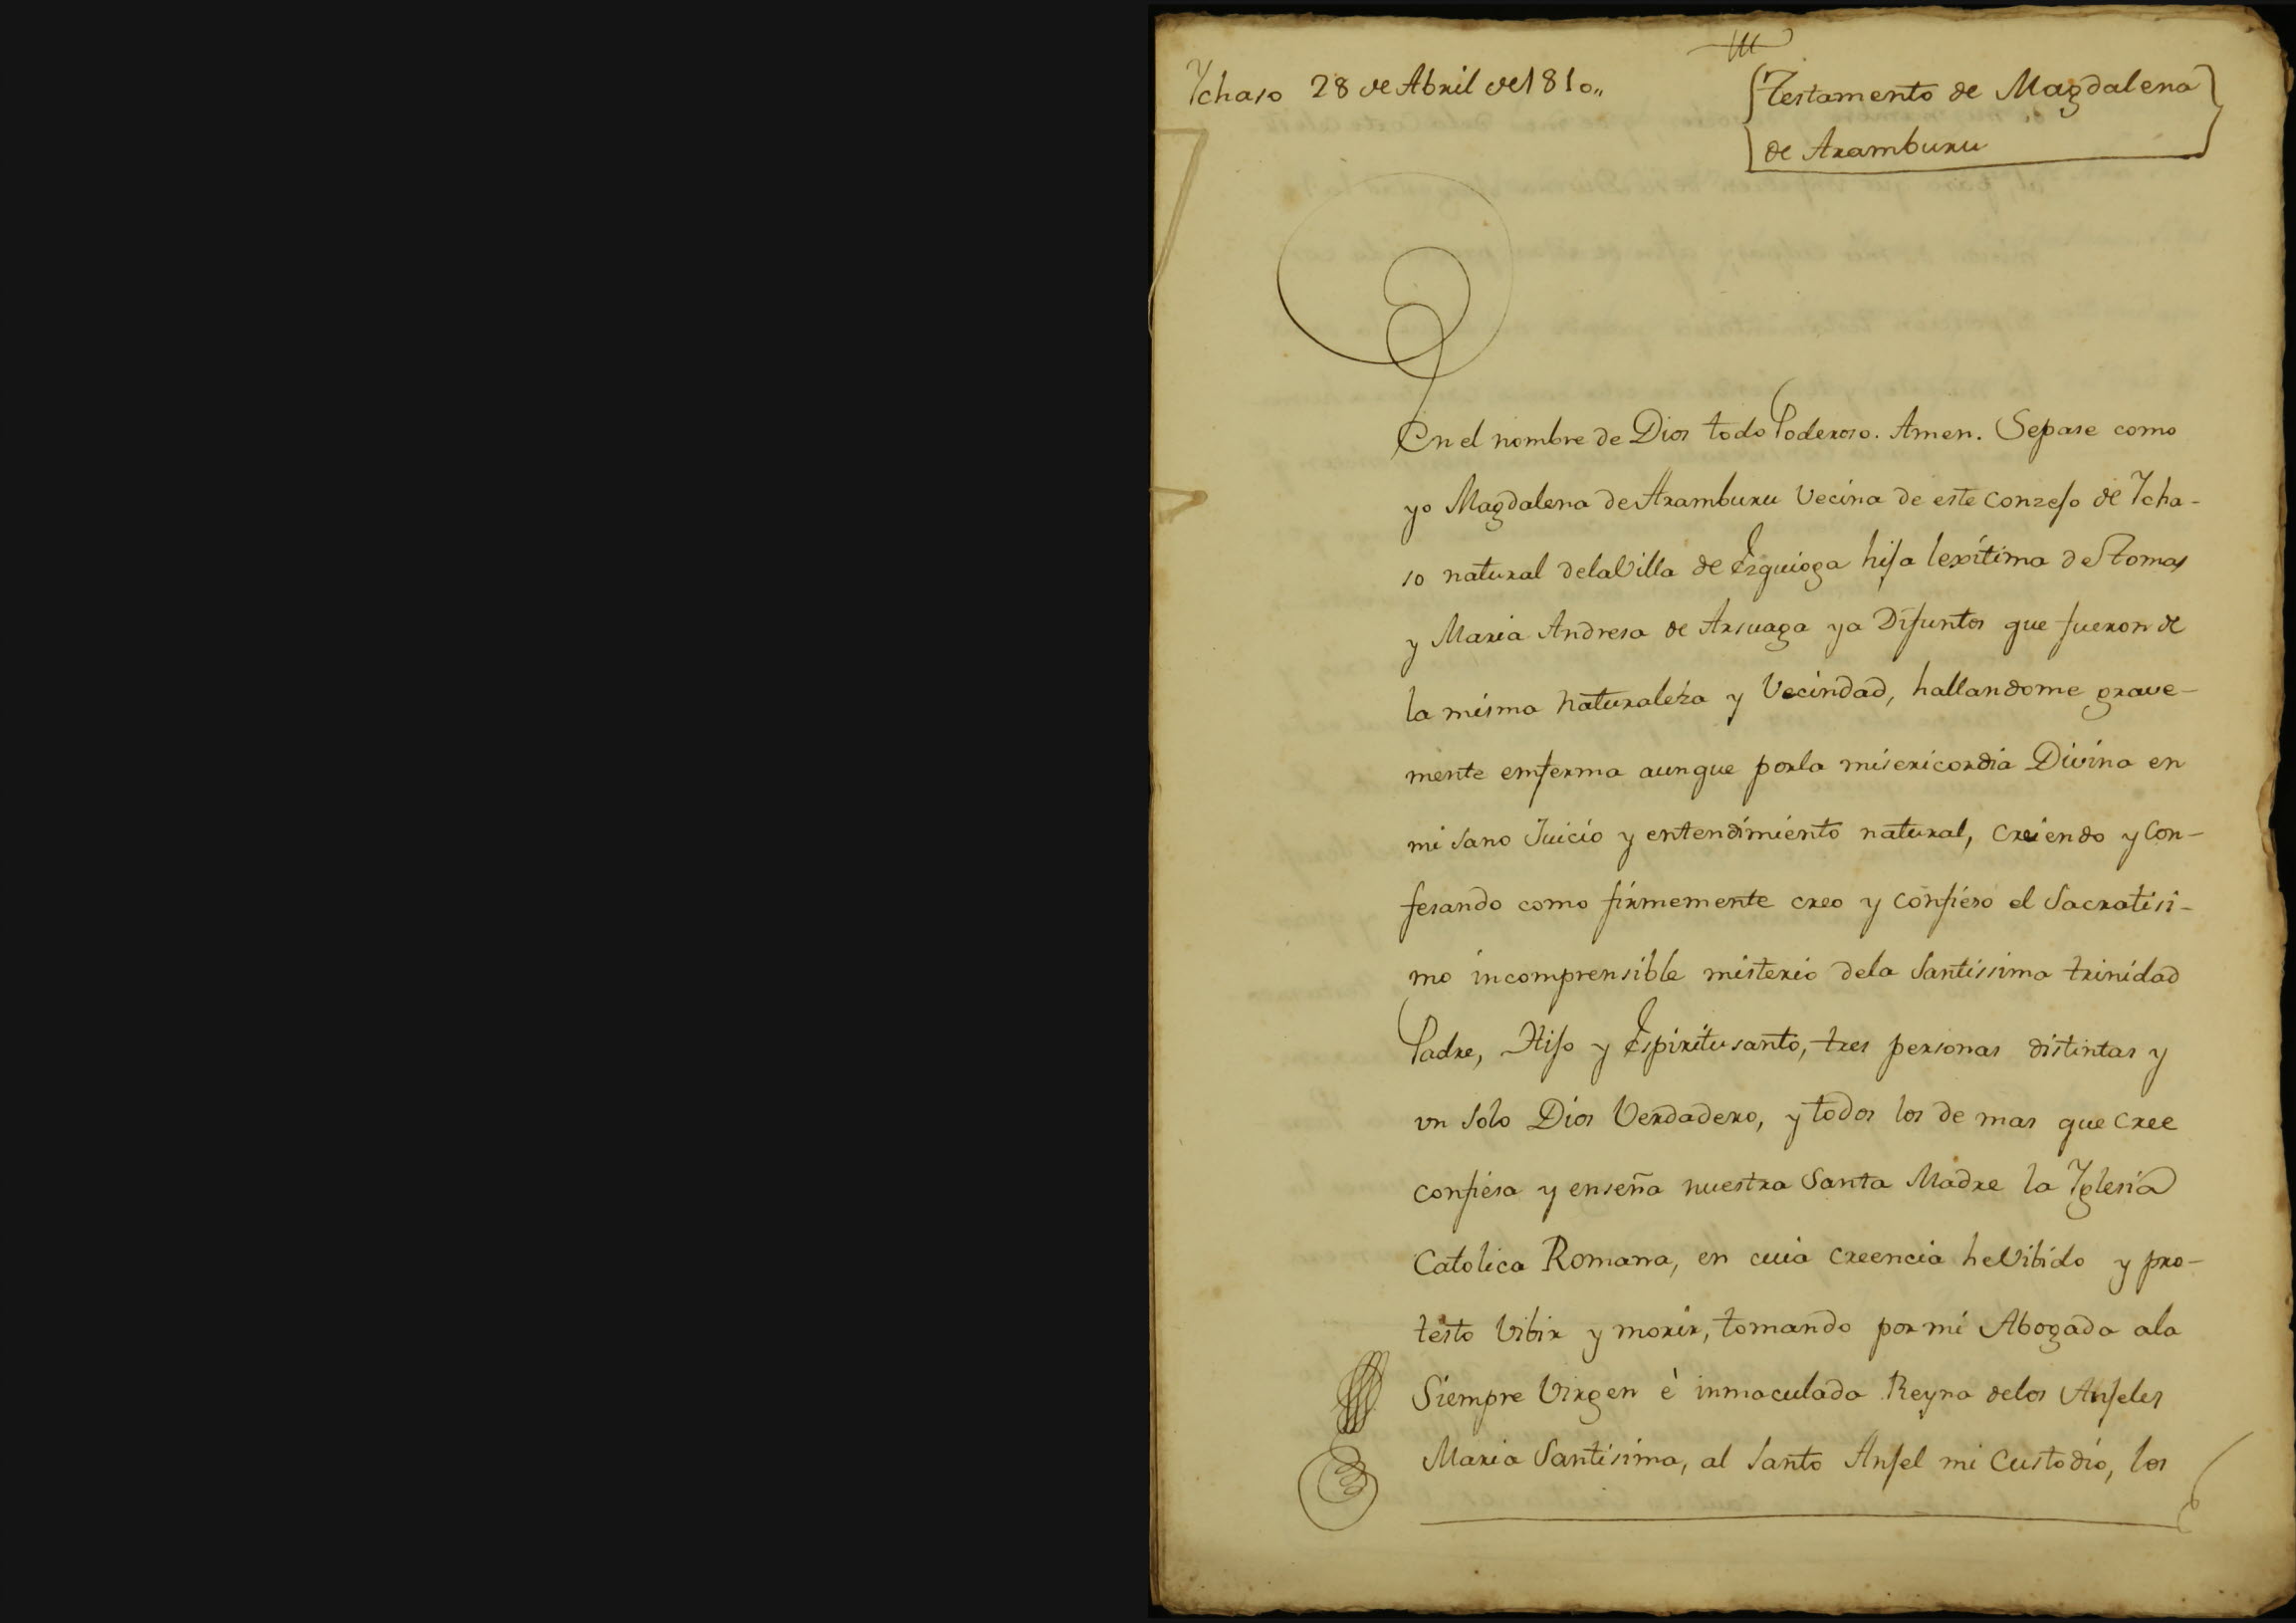 Ychaso 28 de Abril de 1810,,
Testamento de Magdalena
de Aramburu
En el nombre de Dios todo Poderoso. Amen. Sepase como
yo Magdalena de Aramburu Vecina de este conzejo de Ycha-
so natural dela Villa de Ezquioga hija lexitima de Tomas
y Maria Andresa de Arsuaga ya Difuntos que fueron de
la misma naturaleza y Vecindad, hallandome grave-
mente emferma aunque porla misericordia Divina en
mi sano Juicio y entendimiento natural, creiendo y con-
fesando como firmemente creo y confieso el Sacratisi-
mo incomprensible misterio dela Santissima trinidad
Padre, Hijo y Espiritusanto, tres personas distintas y
vn solo Dios Verdadero, y todos los de mas que cree
confiesa y enseña nuestra Santa Madre la Yglesia
Catolica Romana, en cuia creencia he Vibido y pro-
testo Vibir y morir, tomando por mi Abogada ala
Siempre Virgen è inmaculada Reyna delos Anjeles
Maria Santisima, al Santo Anjel mi Custodio, los